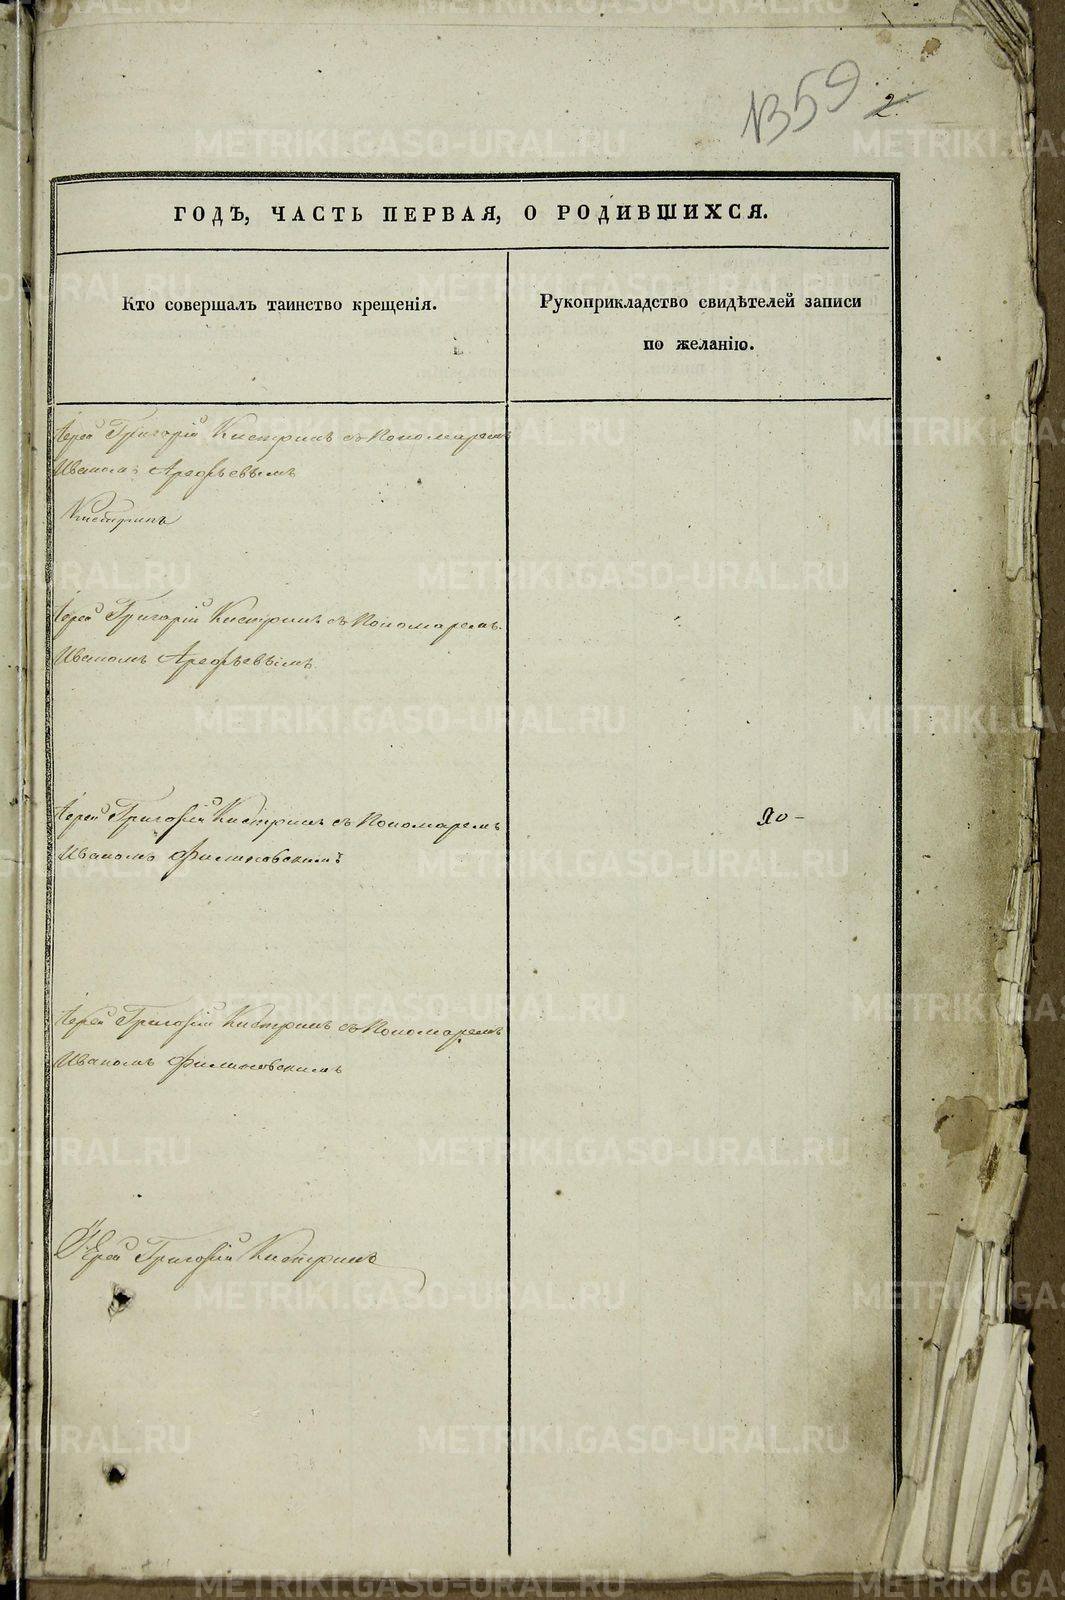 № 59
2.
ГОДЪ, ЧАСТЬ ПЕРВАЯ, О РОДИВШИХСЯ.
Кто совершалъ таинство крещенія.
Рукоприкладство свидѣтелей записи
по желанію.
Іерей Григорій Кистринъ съ Пономаремъ
Иваномъ Арефьевымъ
Кистринъ
Іерей Григорій Кистринъ съ Пономаремъ
Иваномъ Арефьевымъ
Іерей Григорій Кистринъ съ Пономаремъ
Иваномъ Филиновскимъ
Іерей Григорій Кистринъ съ Пономаремъ
Иваномъ Филиновскимъ
Іерей Григорій Кистринъ
METRIKI.GASO-URAL.RU